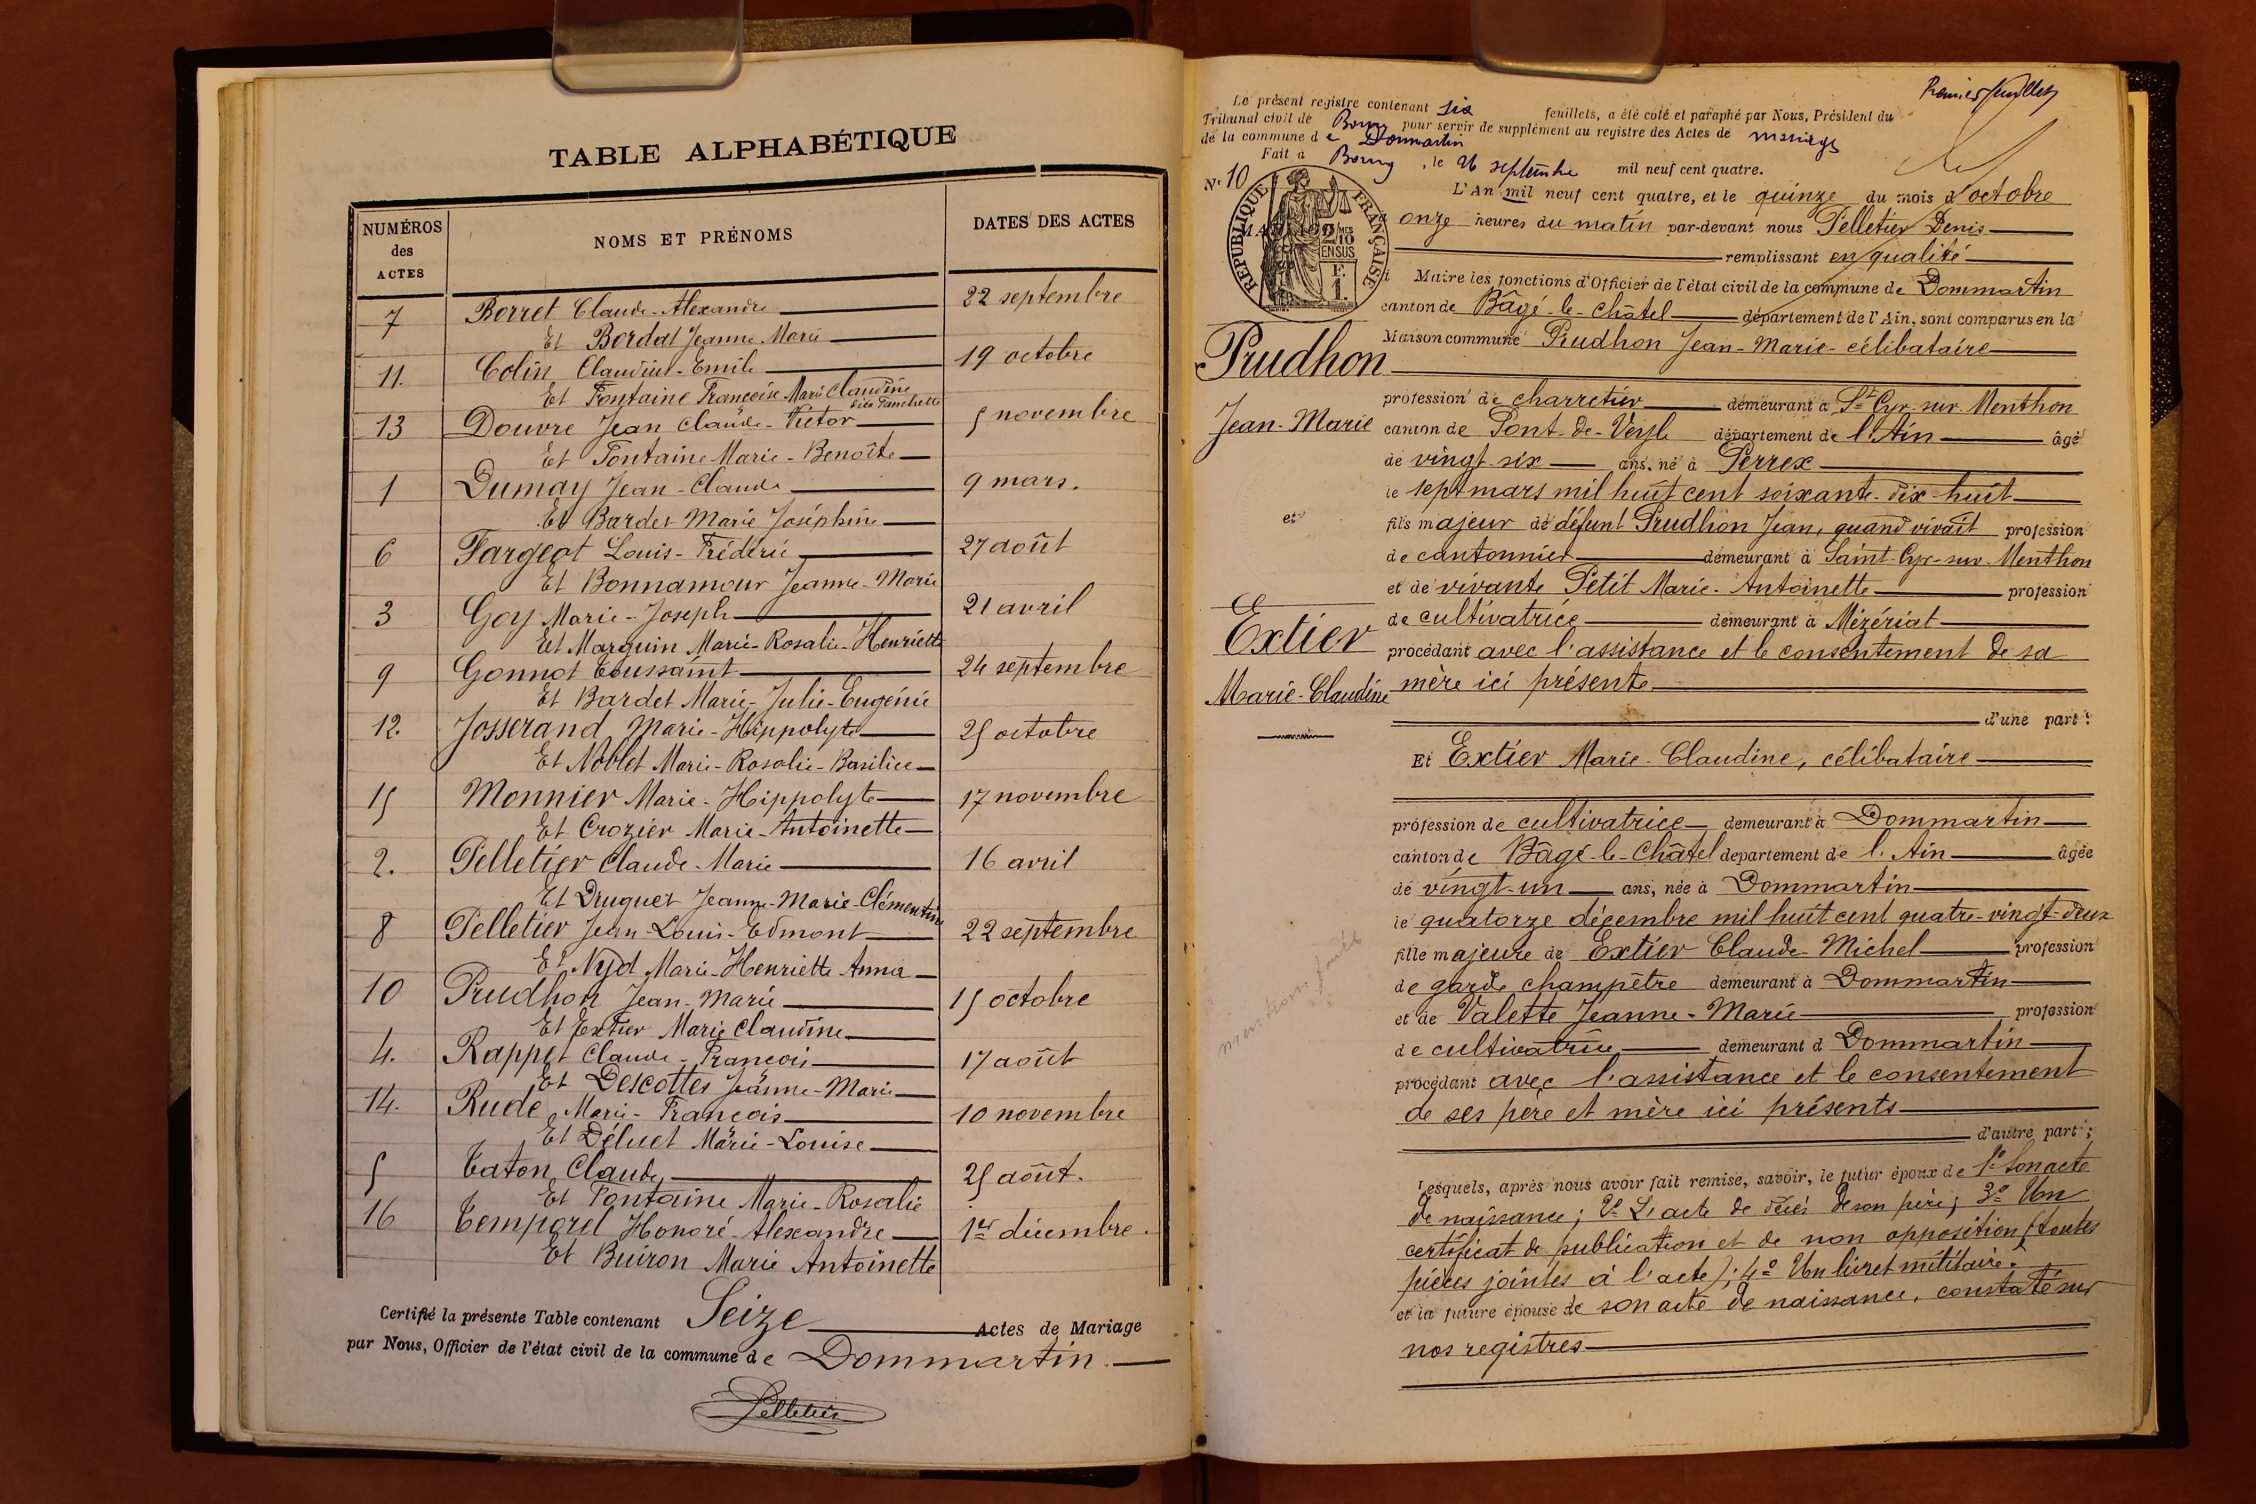 TABLE ALPHABÉTIQUE
NUMÉROS des ACTES
NOMS ET PRÉNOMS
DATES DES ACTES
7 Borret Claude-Alexandre 22 septembre
Et Bordat Jeanne Marie
11. Colin Claudius-Emile 19 octobre
Et Fontaine Françoise Marie Claudine
dite Fanchette
13 Douvre Jean Claude-Victor 5 novembre
Et Fontaine Marie-Benoîte
1 Dumay Jean-Claude 9 mars.
Et Bardet Marie Joséphine
6 Fargeot Louis-Frédéric 27 août
Et Bonnamour Jeanne-Marie
3 Goy Marie-Joseph 21 avril
Et Marguin Marie-Rosalie-Henriette
9 Gonnot Toussaint 24 septembre
Et Bardet Marie-Julie-Eugénie
12. Josserand Marie-Hippolyte 25 octobre
Et Noblet Marie-Rosalie-Basilice
15 Monnier Marie-Hippolyte 17 novembre
Et Crozier Marie-Antoinette
2. Pelletier Claude-Marie 16 avril
Et Druguet Jeanne-Marie-Clémentine
8 Pelletier Jean-Louis-Edmont 22 septembre
Et Nyd Marie-Henriette Anna
10 Prudhon Jean-Marie 15 octobre
Et Extier Marie Claudine
4. Rappet Claude-François 17 août
Et Descottes Jeanne-Marie
14. Rude Marie-François 10 novembre
Et Déluet Marie-Louise
5 Taton Claude 25 août.
Et Fontaine Marie-Rosalie
16 Temporel Honoré-Alexandre 1er décembre.
Et Buiron Marie Antoinette
Certifié la présente Table contenant Seize Actes de Mariage
par Nous, Officier de l'état civil de la commune de Dommartin.
Pelletier
Premier feuillet
Le présent registre contenant six feuillets, a été coté et paraphé par Nous, Président du
Tribunal civil de Bourg pour servir de supplément au registre des Actes de mariage
de la commune de Dommartin
Fait à Bourg, le 26 septembre mil neuf cent quatre.
N° 10
RÉPUBLIQUE FRANÇAISE
2/10 EN SUS
L'An mil neuf cent quatre, et le quinze du mois d'octobre
onze heures du matin par-devant nous Pelletier Denis
remplissant en qualité
Maire les fonctions d'Officier de l'état civil de la commune de Dommartin
canton de Bâgé-le-Châtel département de l'Ain, sont comparus en la
Maison commune Prudhon Jean-Marie-célibataire
Prudhon
Jean-Marie
et
Extier
Marie-Claudine
mentions faites
profession de charretier demeurant à St Cyr-sur-Menthon
canton de Pont-de-Veyle département de l'Ain âgé
de vingt-six ans, né à Perrex
le sept mars mil huit cent soixante-dix-huit
fils majeur de défunt Prudhon Jean, quand vivait profession
de cantonnier demeurant à Saint-Cyr-sur-Menthon
et de vivante Petit Marie-Antoinette profession
de cultivatrice demeurant à Mézériat
procédant avec l'assistance et le consentement de sa
mère ici présente
d'une part :
Et Extier Marie-Claudine, célibataire
profession de cultivatrice demeurant à Dommartin
canton de Bâgé-le-Châtel département de l'Ain âgée
de vingt-un ans, née à Dommartin
le quatorze décembre mil huit cent quatre-vingt-deux
fille majeure de Extier Claude-Michel profession
de garde champêtre demeurant à Dommartin
et de Valette Jeanne-Marie profession
de cultivatrice demeurant à Dommartin
procédant avec l'assistance et le consentement
de ses père et mère ici présents
d'autre part ;
Lesquels, après nous avoir fait remise, savoir, le futur époux de 1° Son acte
de naissance; 2° L'acte de décès de son père; 3° Un
certificat de publication et de non opposition (toutes
pièces jointes à l'acte); 4° Un livret militaire.
et la future épouse de son acte de naissance, constaté sur
nos registres